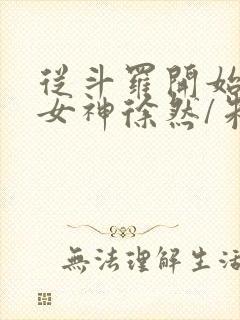 從斗羅開始
女神徐然/朱
無法理解生活